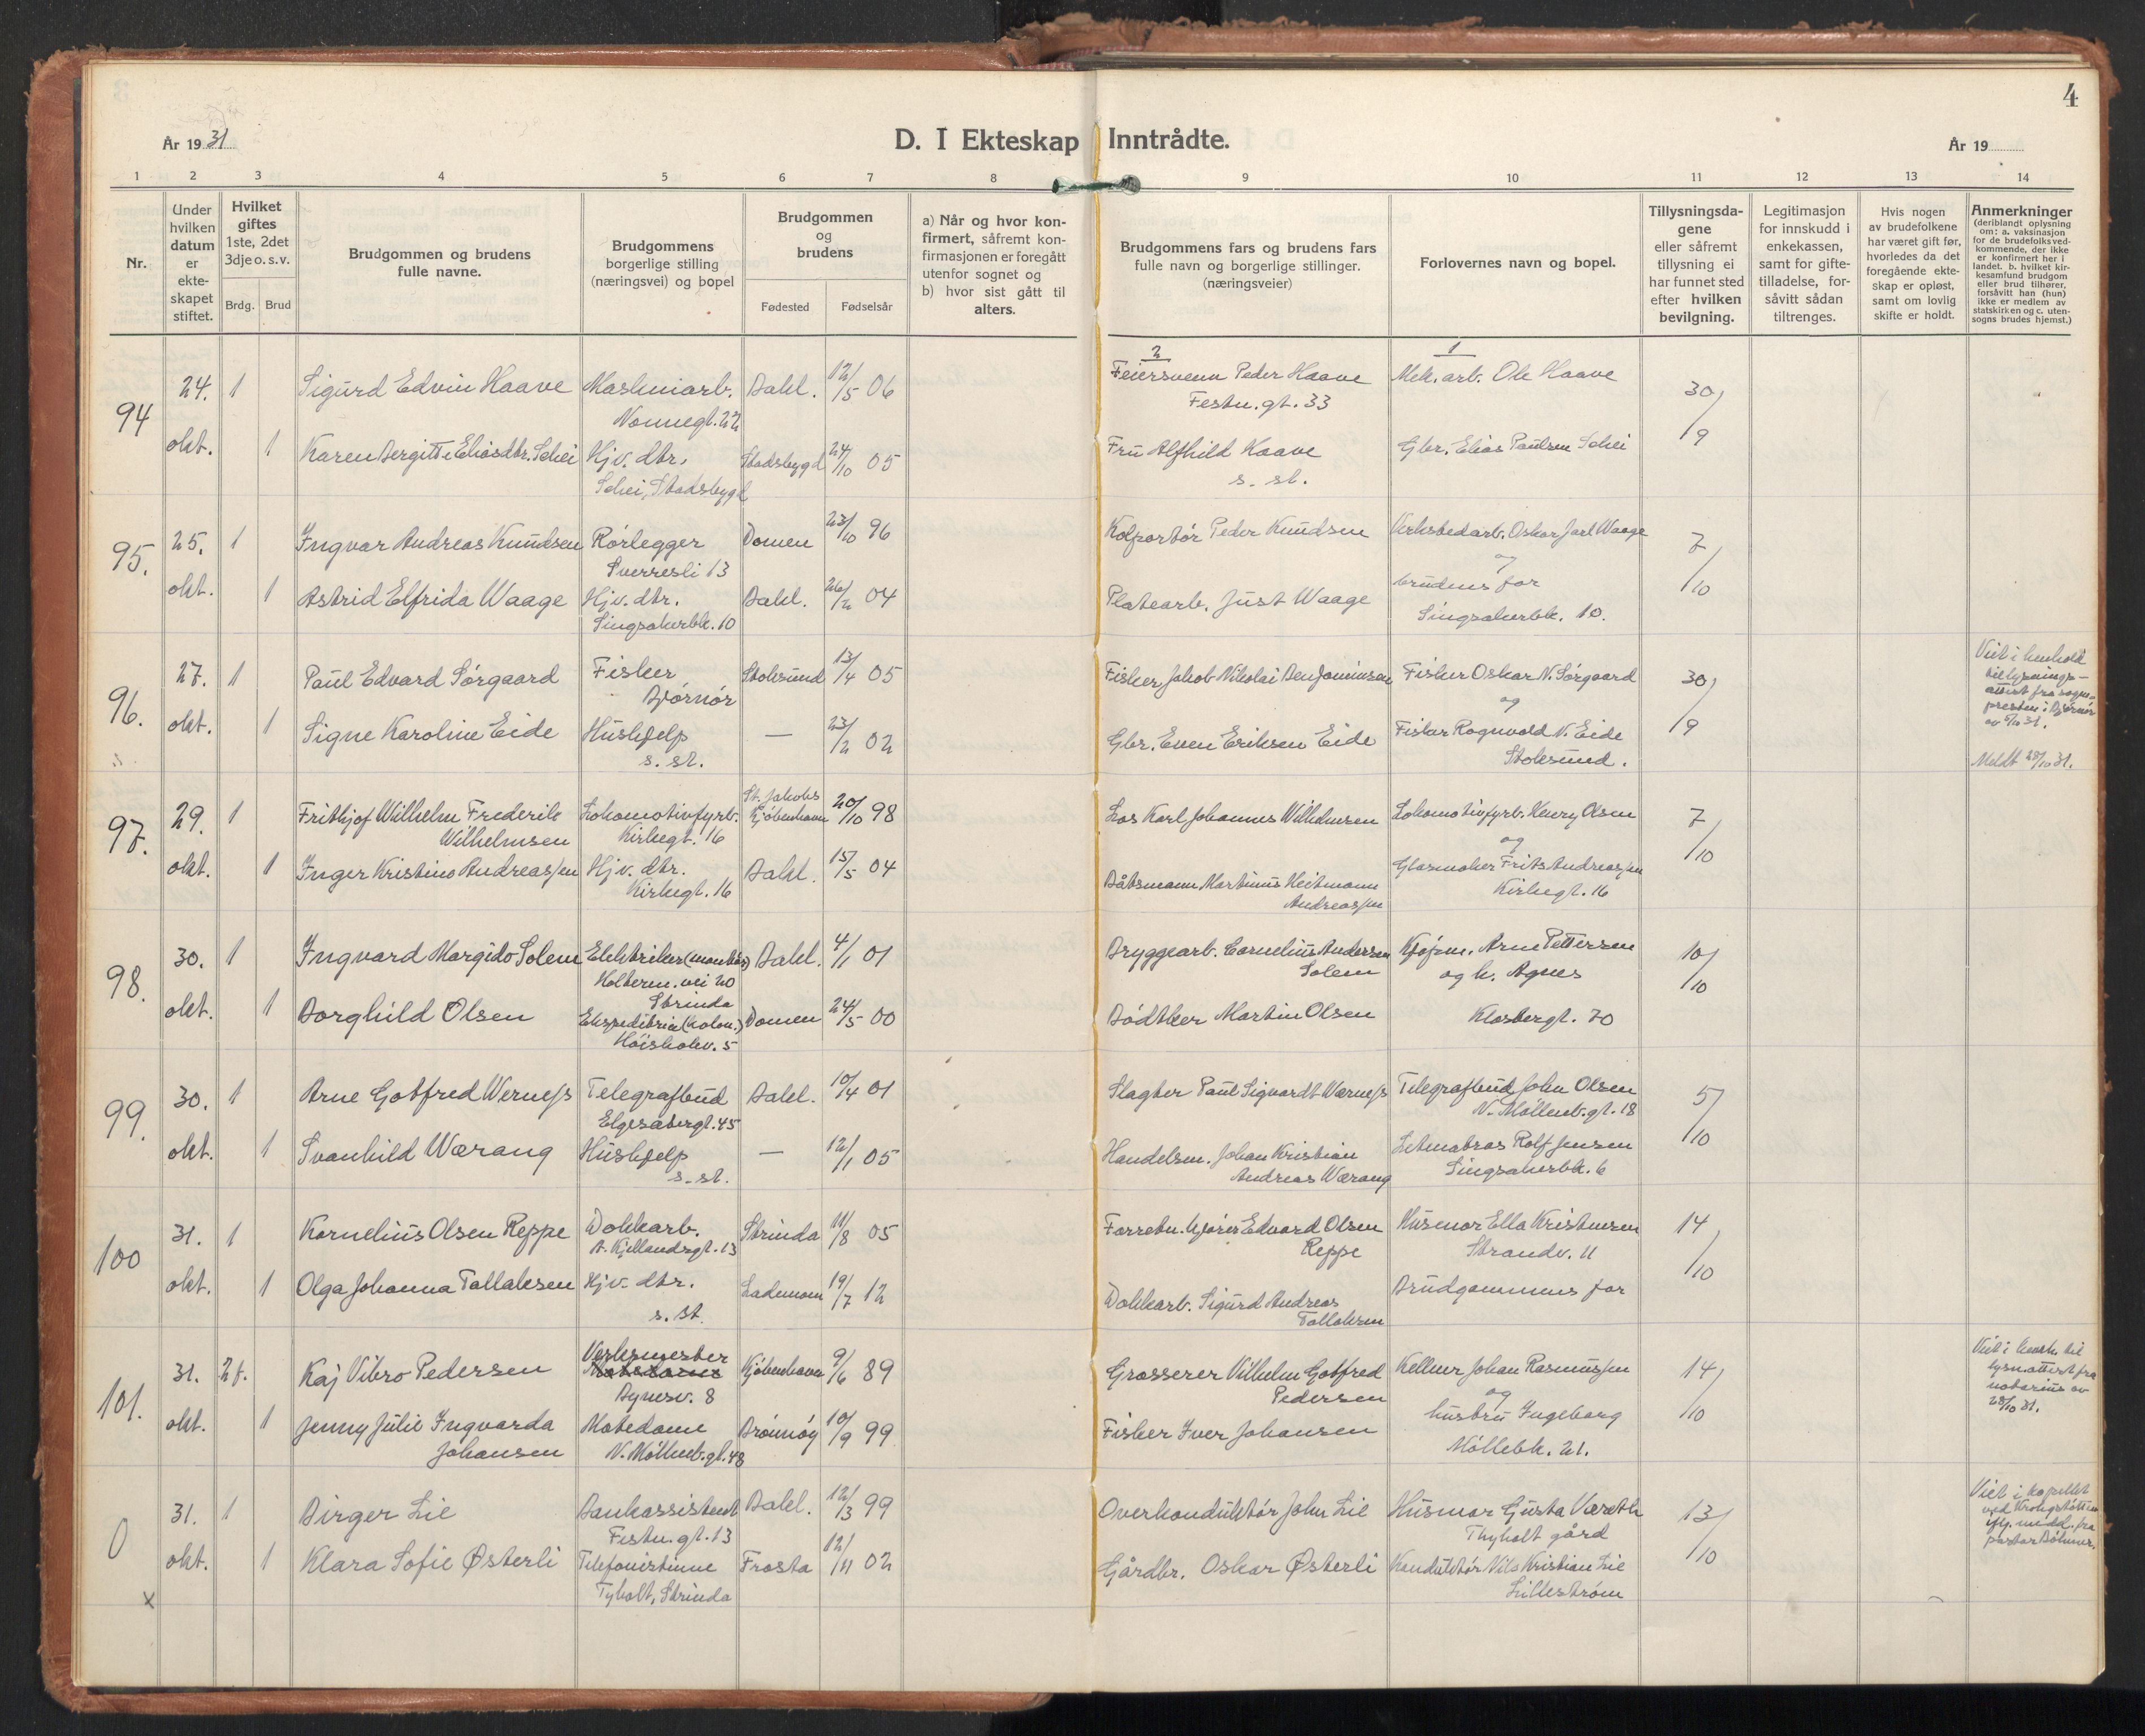 4
År 1931
D. I Ekteskap Inntrådte.
År 19
1 2 3 4 5 6 7 8 9 10 11 12 13 14
Nr.
Under hvilken datum er ekte-skapet stiftet.
Hvilket giftes 1ste, 2det 3dje o. s. v.
Brdg. Brud
Brudgommen og brudens
fulle navne.
Brudgommens
borgerlige stilling
(næringsvei) og bopel
Brudgommen
og
brudens
Fødested Fødselsår
a) Når og hvor kon-
firmert, såfremt kon-
firmasjonen er foregått
utenfor sognet og
b) hvor sist gått til
alters.
Brudgommens fars og brudens fars
fulle navn og borgerlige stillinger.
(næringsveier)
Forlovernes navn og bopel.
Tillysningsda-
gene
eller såfremt
tillysning ei
har funnet sted
efter hvilken
bevilgning.
Legitimasjon
for innskudd i
enkekassen,
samt for gifte-
tilladelse, for-
såvitt sådan
tiltrenges.
Hvis nogen
av brudefolkene
har været gift før,
hvorledes da det
foregående ekte-
skap er opløst,
samt om lovlig
skifte er holdt.
Anmerkninger
(deriblandt oplysning
om: a. vaksinasjon
for de brudefolks ved-
kommende, der ikke
er konfirmert her i
landet. b. hvilket kir-
kesamfund brudgom
eller brud tilhører,
forsåvitt han (hun)
ikke er medlem av
statskirken og c. uten-
sogns brudes hjemst.)
2 1
94 24. 1 Sigurd Edvin Haave Maskinarb. Bakl. 12/5 06 Feiersvenn Peder Haave Mek. arb. Ole Haave 30/9
Nonnegt. 22 Festn. gt. 33
okt. 1 Karen Bergitte Eliasdtr. Schei Hjv. dtr. Stadsbygd 24/10 05 Fru Alfhild Haave Gbr. Elias Paulsen Schei
Schei, Stadsbygd s. st.
95. 25. 1 Ingvar Andreas Knudsen Rørlegger Domen 23/10 96 Kolportør Peder Knudsen Verkstedarb. Oskar Jarl Waage 7/10
Sverresli 13 og
okt. 1 Astrid Elfrida Waage Hjv. dtr. Bakl. 26/2 04 Platearb. Just Waage brudens far
Singsakerbk. 10 Singsakerbk. 10.
96. 27. 1 Paul Edvard Sørgaard Fisker Stoksund 13/4 05 Fisker Jakob Nikolai Benjaminsen Fisker Oskar N. Sørgaard 30/9
Bjørnør og
okt. 1 Signe Karoline Eide Hushjelp — 23/2 02 Gbr. Even Eriksen Eide Fisker Rognvald N. Eide
s. st. Stoksund.
Viet i henhold
til lysnings-
attest fra sogne-
presten i Bjørnør
av 5/10 31.
Meldt 28/10 31.
97. 29. 1 Frithjof Wilhelm Frederik Lokomotivfyrb. St. Jakobs Kjøbenhavn 20/10 98 Los Karl Johannes Wilhelmsen Lokomotivfyrb. Henry Olsen 7/10
Wilhelmsen Kirkegt. 16 og
okt. 1 Inger Kristine Andreassen Hjv. dtr. Bakl. 15/5 04 Båtsmann Martinus Heitmann Glasmaker Frits Andreassen
Kirkegt. 16 Andreassen Kirkegt. 16
98. 30. 1 Ingvard Margido Solem Elektriker (montør) Bakl. 4/1 01 Bryggearb. Cornelius Andersen Kjøpm. Arne Pettersen 10/10
Holterm. vei 20 Solem og h. Agnes
Strinda
okt. 1 Borghild Olsen Ekspeditrise (kolon.) Domen 24/5 00 Bødtker Martin Olsen Klostergt. 70
Høiskolev. 5
99. 30. 1 Arne Gotfred Werness Telegrafbud Bakl. 10/4 01 Slagter Paul Sigvardt Værness Telegrafbud John Olsen 5/10
Elgesætergt. 45 N. Møllenb. gt. 18
okt. 1 Svanhild Wærang Hushjelp — 12/1 05 Handelsm. Johan Kristian Rolf Jensen
s. st. Andreas Wærang Singsakerbk. 6
100 31. 1 Kornelius Olsen Reppe Dokkarb. Strinda 11/8 05 Forretn. kjører Edvard Olsen Husmor Ella Kristensen 14/10
A. Kjellandsgt. 13 Reppe Strandv. 11
okt. 1 Olga Johanna Tollaksen Hjv. dtr. Lademoen 19/7 12 Dokkarb. Sigurd Andreas Brudgommens far
s. st. Tollaksen
101. 31. 2f. Kaj Vibro Pedersen Verksmester Kjøbenhavn 9/6 89 Grosserer Vilhelm Gotfred Kelner Johan Rasmussen 14/10
Bynesv. 8 Pedersen og
okt. 1 Jenny Julie Ingvarda Motedame Brønnøy 10/9 99 Fisker Iver Johansen hustru Ingeborg
Johansen N. Møllenb. gt. 48 Møllebk. 21.
Viet i henh. til
lysn. attest fra
notarius av
28/10 31.
0 31. 1 Birger Lie Bankassistent Bakl. 12/3 99 Overkonduktør John Lie Husmor GustaVæreth 13/10
Festn. gt. 13 Thyholt gård
okt. 1 Klara Sofie Østerli Telefonistinne Frosta 12/11 02 Gårdbr. Oskar Østerli Konduktør Nils Kristian Lie
Tyholt, Strinda Lillestrøm
x
Viet i kapellet
ved
iflg. medd. fra
pastor Bøhmer.